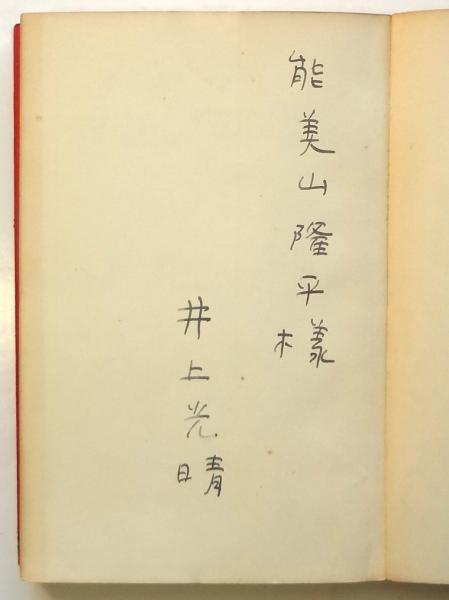 能美山隆平様
井上光晴